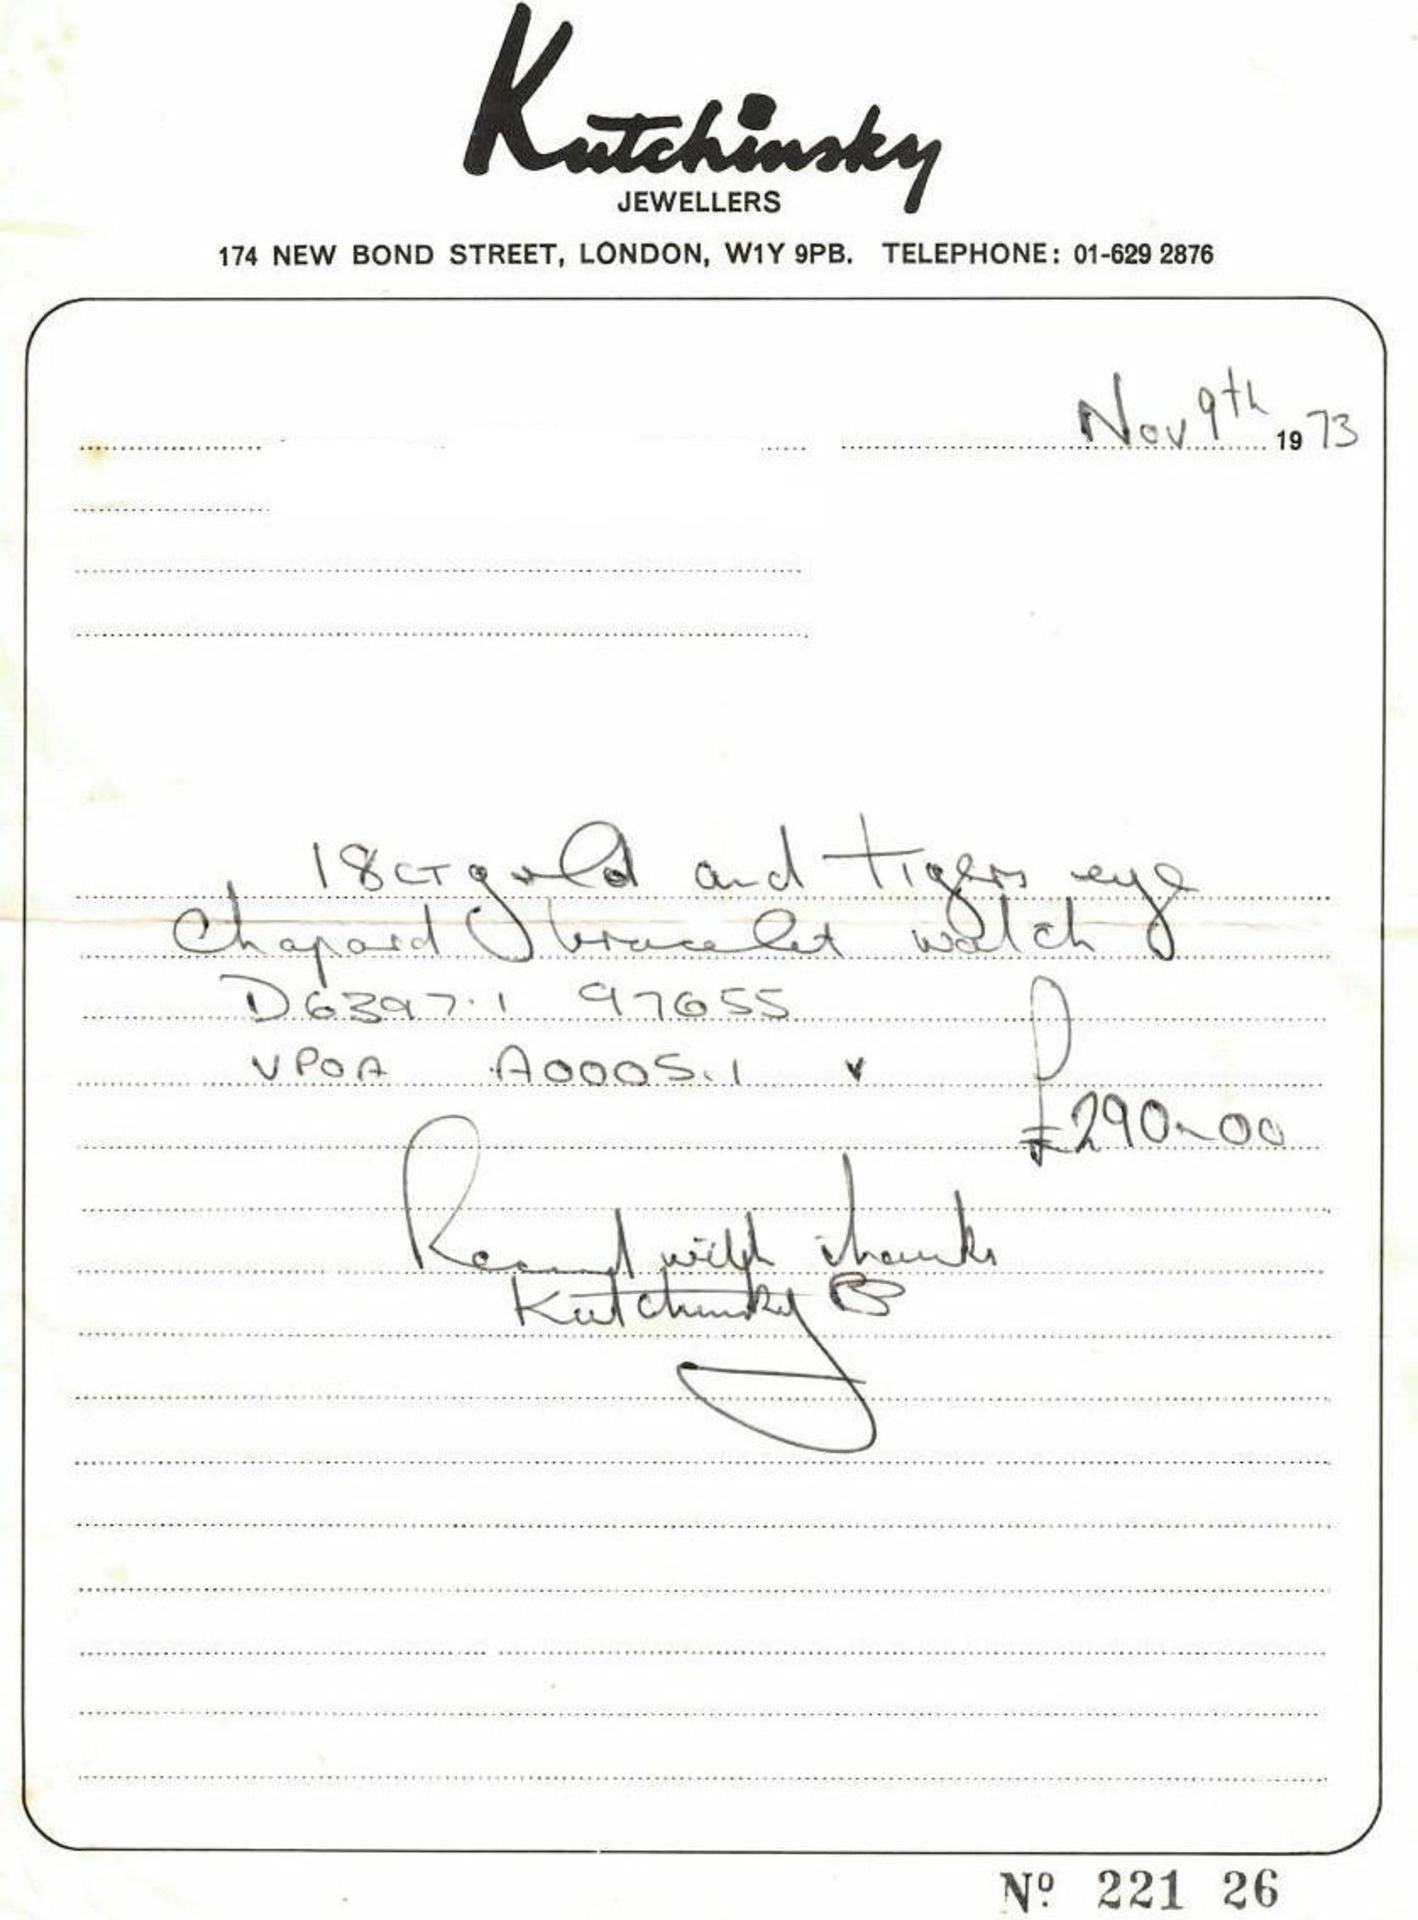 Kutchinsky
JEWELLERS
174 NEW BOND STREET, LONDON, W1Y 9PB. TELEPHONE: 01-629 2876
Nov 9th 1973
18CT gold and tigers eye
Chopard bracelet watch
D6397.1 97655
VPOA A0005.1 v
£290-00
Received with thanks
Kutchinsky
Nº 221 26